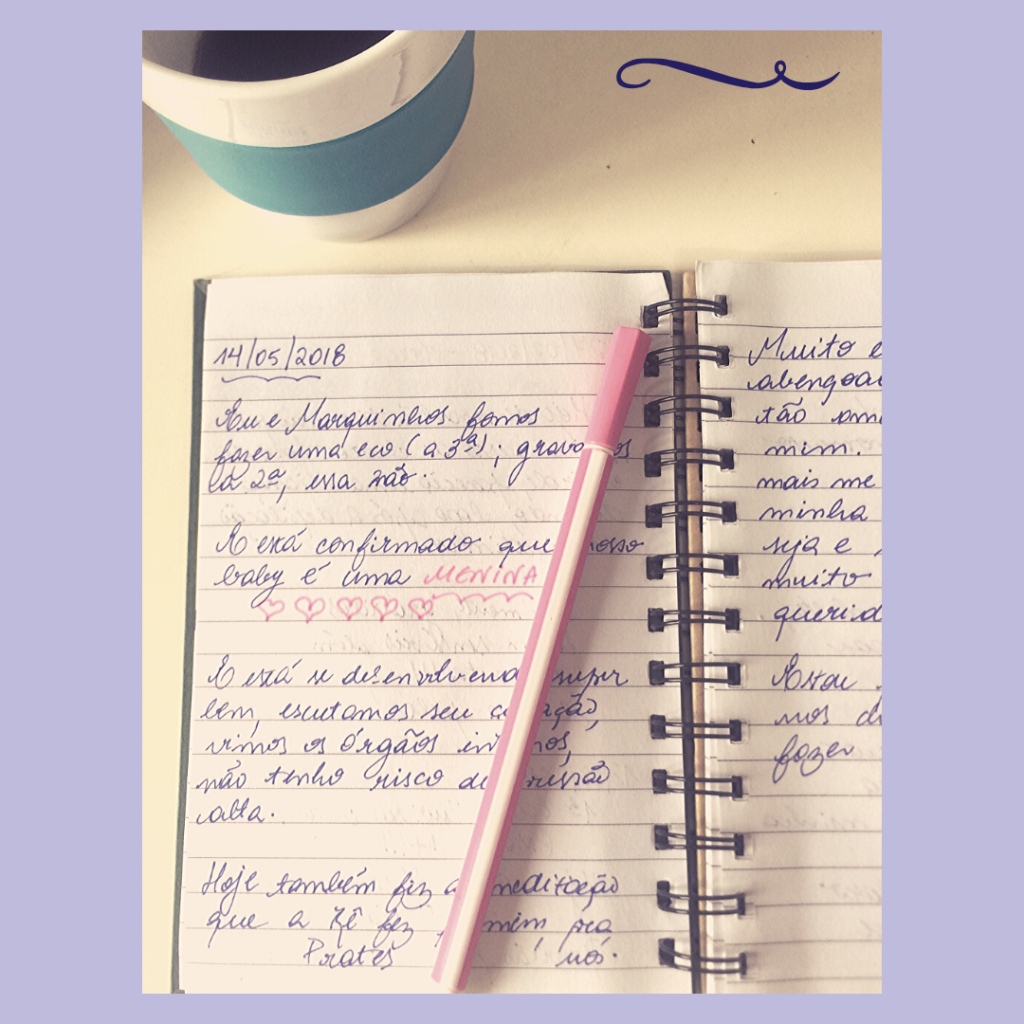 14/05/2018
Eu e Marquinhos fomos
fazer uma eco (a 3ª); grava os
la 2ª, essa não.
E está confirmado que nosso
baby é uma MENINA
E está se desenvolvend super
bem, escutamos seu ação,
vimos os órgãos in nos,
não tenho risco de ressão
alta.
Hoje também fiz a meditação
que a fez mim pra
Prates nós.
Muito e
abençoa
tão am
mim.
mais me
minha
seja e
muito
querid
Estou
nos d
fazer